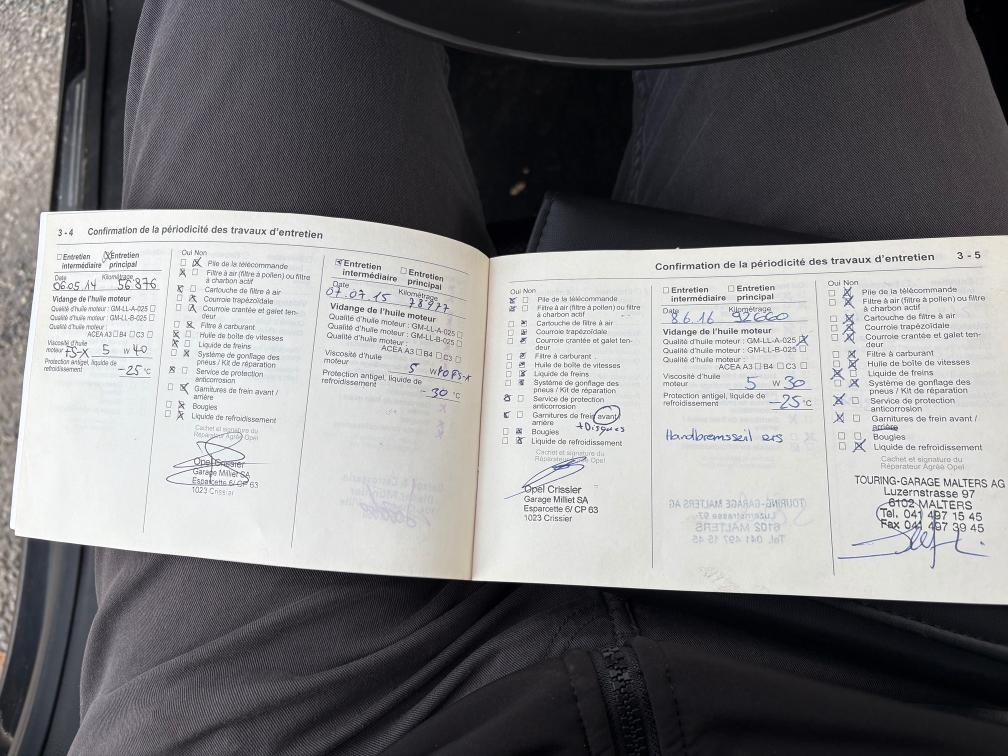 3 - 4 Confirmation de la périodicité des travaux d'entretien
Entretien intermédiaire
Entretien principal
Date
Kilométrage
06.05.14 56'876
Vidange de l'huile moteur
Qualité d'huile moteur : GM-LL-A-025
Qualité d'huile moteur : GM-LL-B-025
Qualité d'huile moteur :
ACEA A3 B4 C3
Viscosité d'huile
moteur FS-X 5 W 40
Protection antigel, liquide de
refroidissement -25 °C
Oui Non
Pile de la télécommande
Filtre à air (filtre à pollen) ou filtre
à charbon actif
Cartouche de filtre à air
Courroie trapézoïdale
Courroie crantée et galet ten-
deur
Filtre à carburant
Huile de boîte de vitesses
Liquide de freins
Système de gonflage des
pneus / Kit de réparation
Service de protection
anticorrosion
Garnitures de frein avant /
arrière
Bougies
Liquide de refroidissement
Cachet et signature du
Réparateur Agréé Opel
Opel Crissier
Garage Milliet SA
Esparcette 6/ CP 63
1023 Crissier
Entretien intermédiaire
Entretien principal
Date
Kilométrage
07.07.15 78'977
Vidange de l'huile moteur
Qualité d'huile moteur : GM-LL-A-025
Qualité d'huile moteur : GM-LL-B-025
Qualité d'huile moteur :
ACEA A3 B4 C3
Viscosité d'huile
moteur 5 W 40 FS-X
Protection antigel, liquide de
refroidissement -30 °C
Confirmation de la périodicité des travaux d'entretien 3 - 5
Oui Non
Pile de la télécommande
Filtre à air (filtre à pollen) ou filtre
à charbon actif
Cartouche de filtre à air
Courroie trapézoïdale
Courroie crantée et galet ten-
deur
Filtre à carburant
Huile de boîte de vitesses
Liquide de freins
Système de gonflage des
pneus / Kit de réparation
Service de protection
anticorrosion
Garnitures de frein avant /
arrière + Disques
Bougies
Liquide de refroidissement
Cachet et signature du
Réparateur Agréé Opel
Opel Crissier
Garage Milliet SA
Esparcette 6/ CP 63
1023 Crissier
Entretien intermédiaire
Entretien principal
Date
Kilométrage
8.6.16 92'660
Vidange de l'huile moteur
Qualité d'huile moteur : GM-LL-A-025
Qualité d'huile moteur : GM-LL-B-025
ACEA A3 B4 C3
Viscosité d'huile
moteur 5 W 30
Protection antigel, liquide de
refroidissement -25 °C
Handbremsseil ers
Oui Non
Pile de la télécommande
Filtre à air (filtre à pollen) ou filtre
à charbon actif
Cartouche de filtre à air
Courroie trapézoïdale
Courroie crantée et galet ten-
deur
Filtre à carburant
Huile de boîte de vitesses
Liquide de freins
Système de gonflage des
pneus / Kit de réparation
Service de protection
anticorrosion
Garnitures de frein avant /
arrière
Bougies
Liquide de refroidissement
Cachet et signature du
Réparateur Agréé Opel
TOURING-GARAGE MALTERS AG
Luzernstrasse 97
6102 MALTERS
Tel. 041 497 15 45
Fax 041 497 39 45